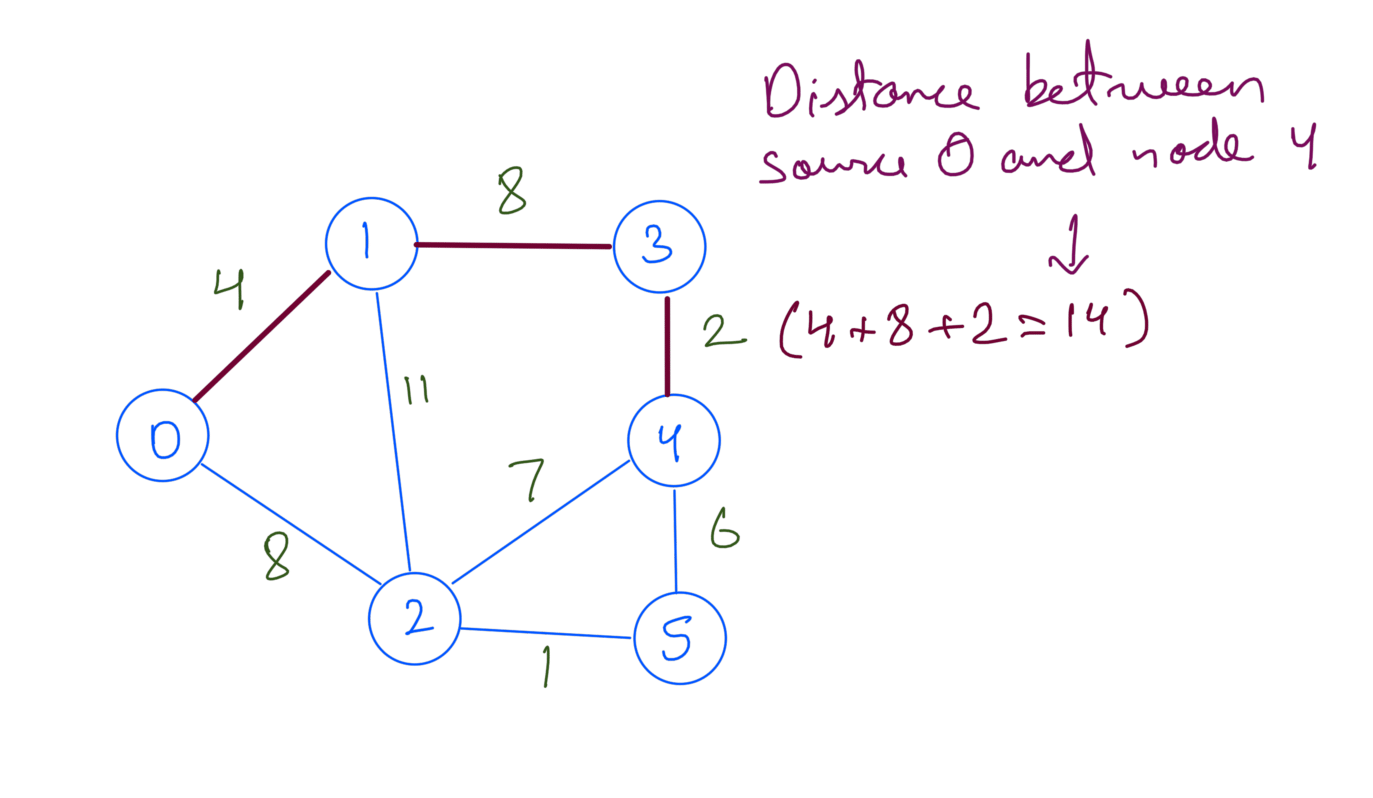 Distance between
source 0 and node 4
↓
(4+8+2=14)
8
1
3
4
2
11
0
4
7
6
8
2
5
1